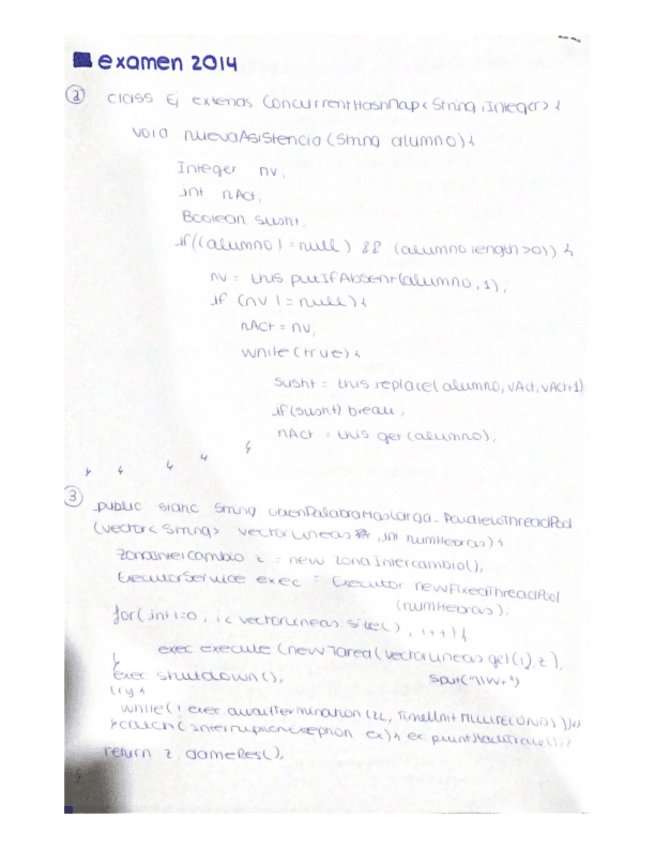 examen 2014
② class Ej extends ConcurrentHashMap<String, Integer> {
void nuevaAsistencia(String alumno){
Integer nv;
int nAct;
Boolean sustit.
if((alumno != null) && (alumno.length>0)) {
nv = this.putIfAbsent(alumno, 1);
if (nv != null){
nAct = nv;
while(true){
sustit = this.replace(alumno, vAct, vAct+1)
if(sustit) break;
nAct = this.get(alumno);
}
} } } }
③ public static String obtenPalabraMasLarga_ParaleloThreadPool
(vector<String> vectorLineas, int numHebras){
ZonaIntercambio z = new ZonaIntercambio();
ExecutorService exec = Executor newFixedThreadPool
(numHebras);
for(int i=0, i< vectorLineas.size(), i++){
exec execute (new Tarea(vectorLineas get(i), z),
} split("\\W+")
exec shutdown();
try{
while(! exec awaitTermination (2L, TimeUnit MILLISECONDS)){}
}catch(InterruptionException ex){ ex printStackTrace();}
return z dameRes();